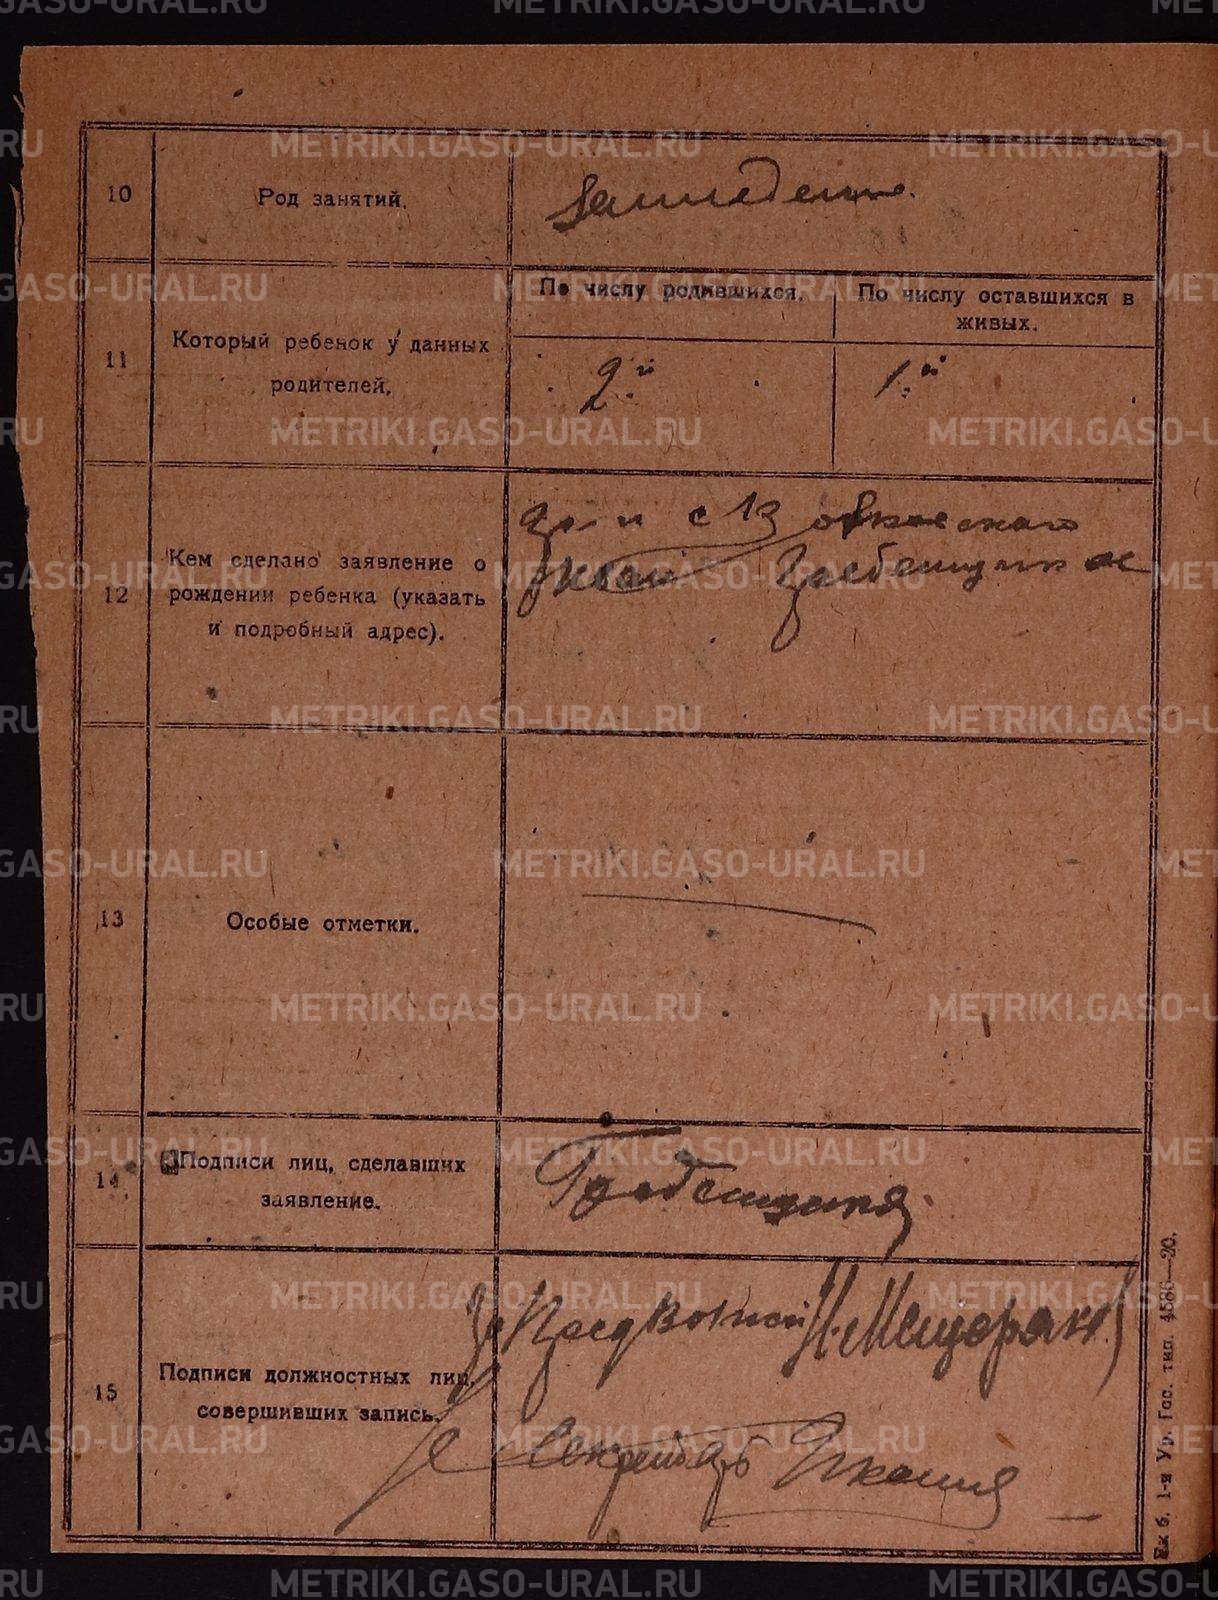 METRIKI.GASO-URAL.RU
10
Род занятий.
Земледелие.
11
Который ребенок у данных
родителей.
По числу родившихся.
2.й
По числу оставшихся в
живых.
1.й
12
Кем сделано заявление о
рождении ребенка (указать
и подробный адрес).
с
Гребенщиков
13
Особые отметки.
14
Подписи лиц, сделавших
заявление.
Гребенщиков
15
Подписи должностных лиц,
совершивших запись.
Н. Мещеряк
Секретарь
Ек 6, 1-я Ур. Гос. тип. 4586—20.